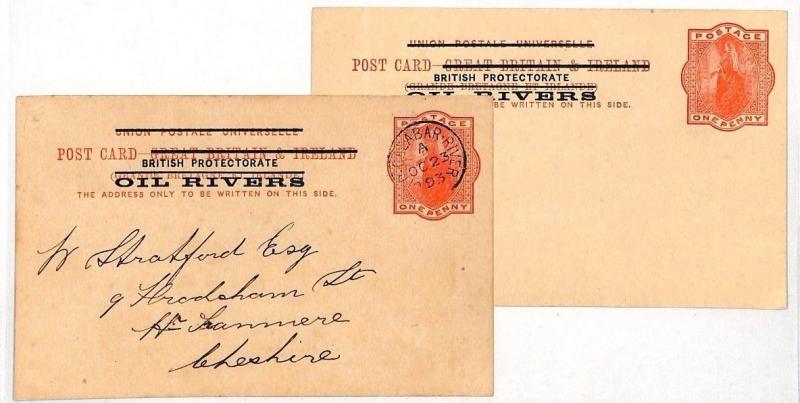 UNION POSTALE UNIVERSELLE
POST CARD GREAT BRITAIN & IRELAND
BRITISH PROTECTORATE
(GRANDE BRETAGNE ET IRLANDE)
OIL RIVERS
THE ADDRESS ONLY TO BE WRITTEN ON THIS SIDE.
POSTAGE
ONE PENNY
CALABAR·RIVER
A
OC 23
93
W Stratford Esq
9 Frodsham St
Hr Tranmere
Cheshire
UNION POSTALE UNIVERSELLE
POST CARD GREAT BRITAIN & IRELAND
BRITISH PROTECTORATE
(GRANDE BRETAGNE ET IRLANDE)
OIL RIVERS
BE WRITTEN ON THIS SIDE.
POSTAGE
ONE PENNY